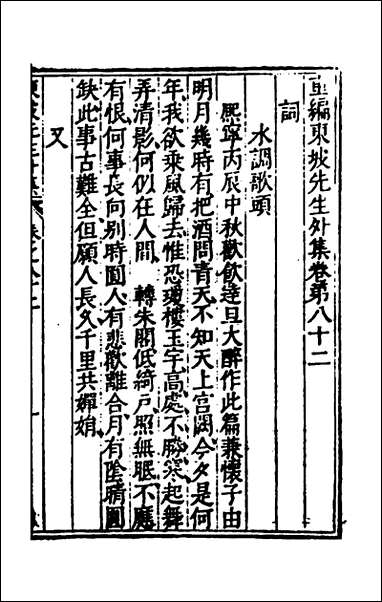 重編東坡先生外集卷第八十二
詞
水調歌頭
熈寧丙辰中秋歡飲達旦大醉作此篇兼懷子由
明月幾時有把酒問青天不知天上宮闕今夕是何
年我欲乘風歸去惟恐瓊樓玉宇高處不勝寒起舞
弄清影何似在人間　轉朱閣低綺戶照無眠不應
有恨何事長向別時圓人有悲歡離合月有陰晴圓
缺此事古難全但願人長久千里共嬋娟
又